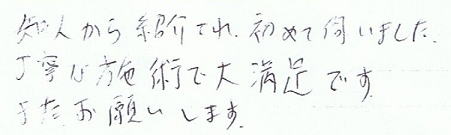 知人から紹介され、初めて伺いました。
丁寧な施術で大満足です。
またお願いします。